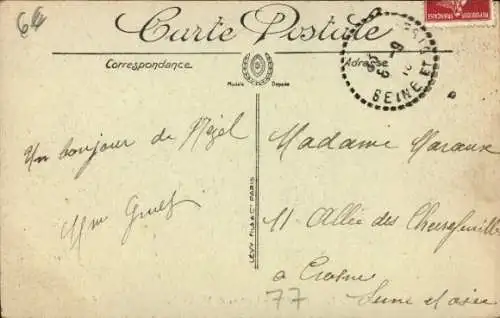 6e
Carte Postale
FRANÇAISE
Correspondance
Adresse
Modèle Déposé
SEINE ET
Un bonjour de
Mme
LEVY FILS ET Cie PARIS
Madame Maraux
11 Allée des
à Crosne
77
Seine et oise